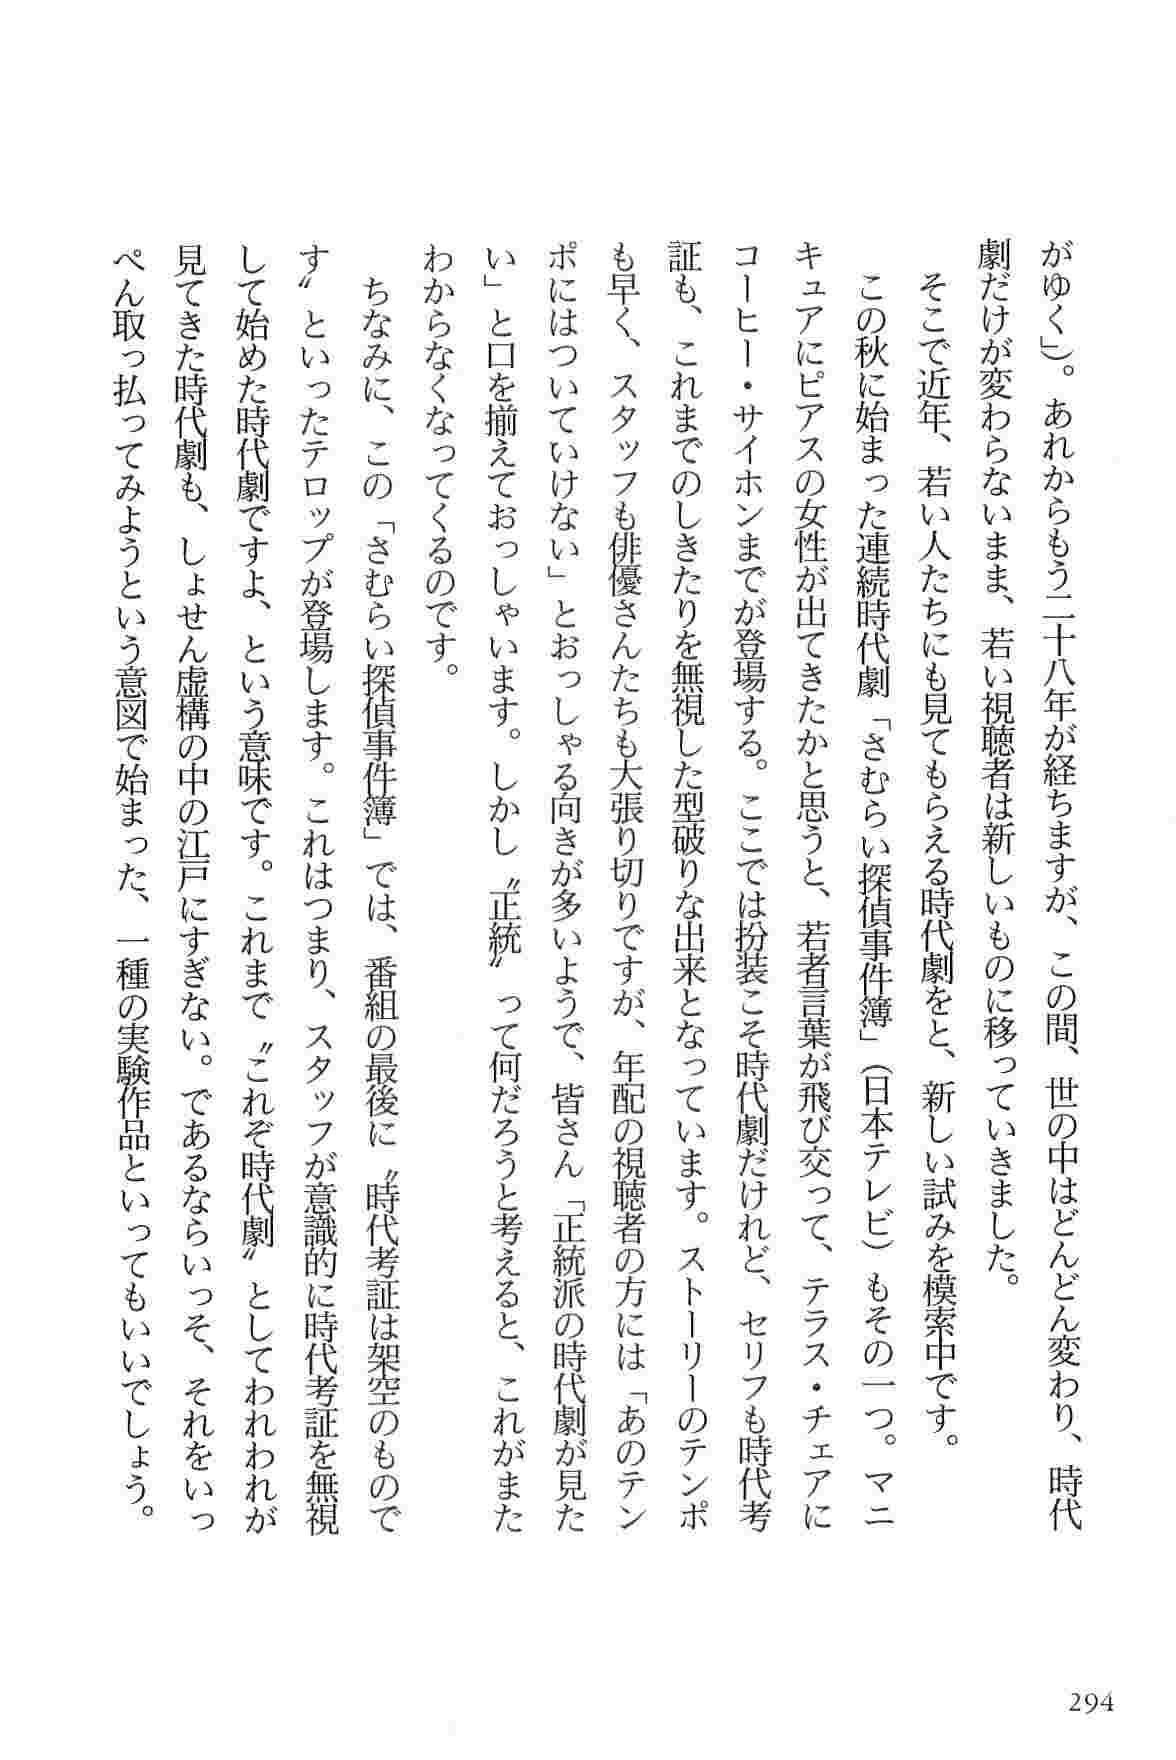 がゆく」）。あれからもう二十八年が経ちますが、この間、世の中はどんどん変わり、時代
劇だけが変わらないまま、若い視聴者は新しいものに移っていきました。
そこで近年、若い人たちにも見てもらえる時代劇をと、新しい試みを模索中です。
この秋に始まった連続時代劇「さむらい探偵事件簿」（日本テレビ）もその一つ。マニ
キュアにピアスの女性が出てきたかと思うと、若者言葉が飛び交って、テラス・チェアに
コーヒー・サイホンまでが登場する。ここでは扮装こそ時代劇だけれど、セリフも時代考
証も、これまでのしきたりを無視した型破りな出来となっています。ストーリーのテンポ
も早く、スタッフも俳優さんたちも大張り切りですが、年配の視聴者の方には「あのテン
ポにはついていけない」とおっしゃる向きが多いようで、皆さん「正統派の時代劇が見た
い」と口を揃えておっしゃいます。しかし〝正統〟って何だろうと考えると、これがまた
わからなくなってくるのです。
ちなみに、この「さむらい探偵事件簿」では、番組の最後に〝時代考証は架空のもので
す〟といったテロップが登場します。これはつまり、スタッフが意識的に時代考証を無視
して始めた時代劇ですよ、という意味です。これまで〝これぞ時代劇〟としてわれわれが
見てきた時代劇も、しょせん虚構の中の江戸にすぎない。であるならいっそ、それをいっ
ぺん取っ払ってみようという意図で始まった、一種の実験作品といってもいいでしょう。
294